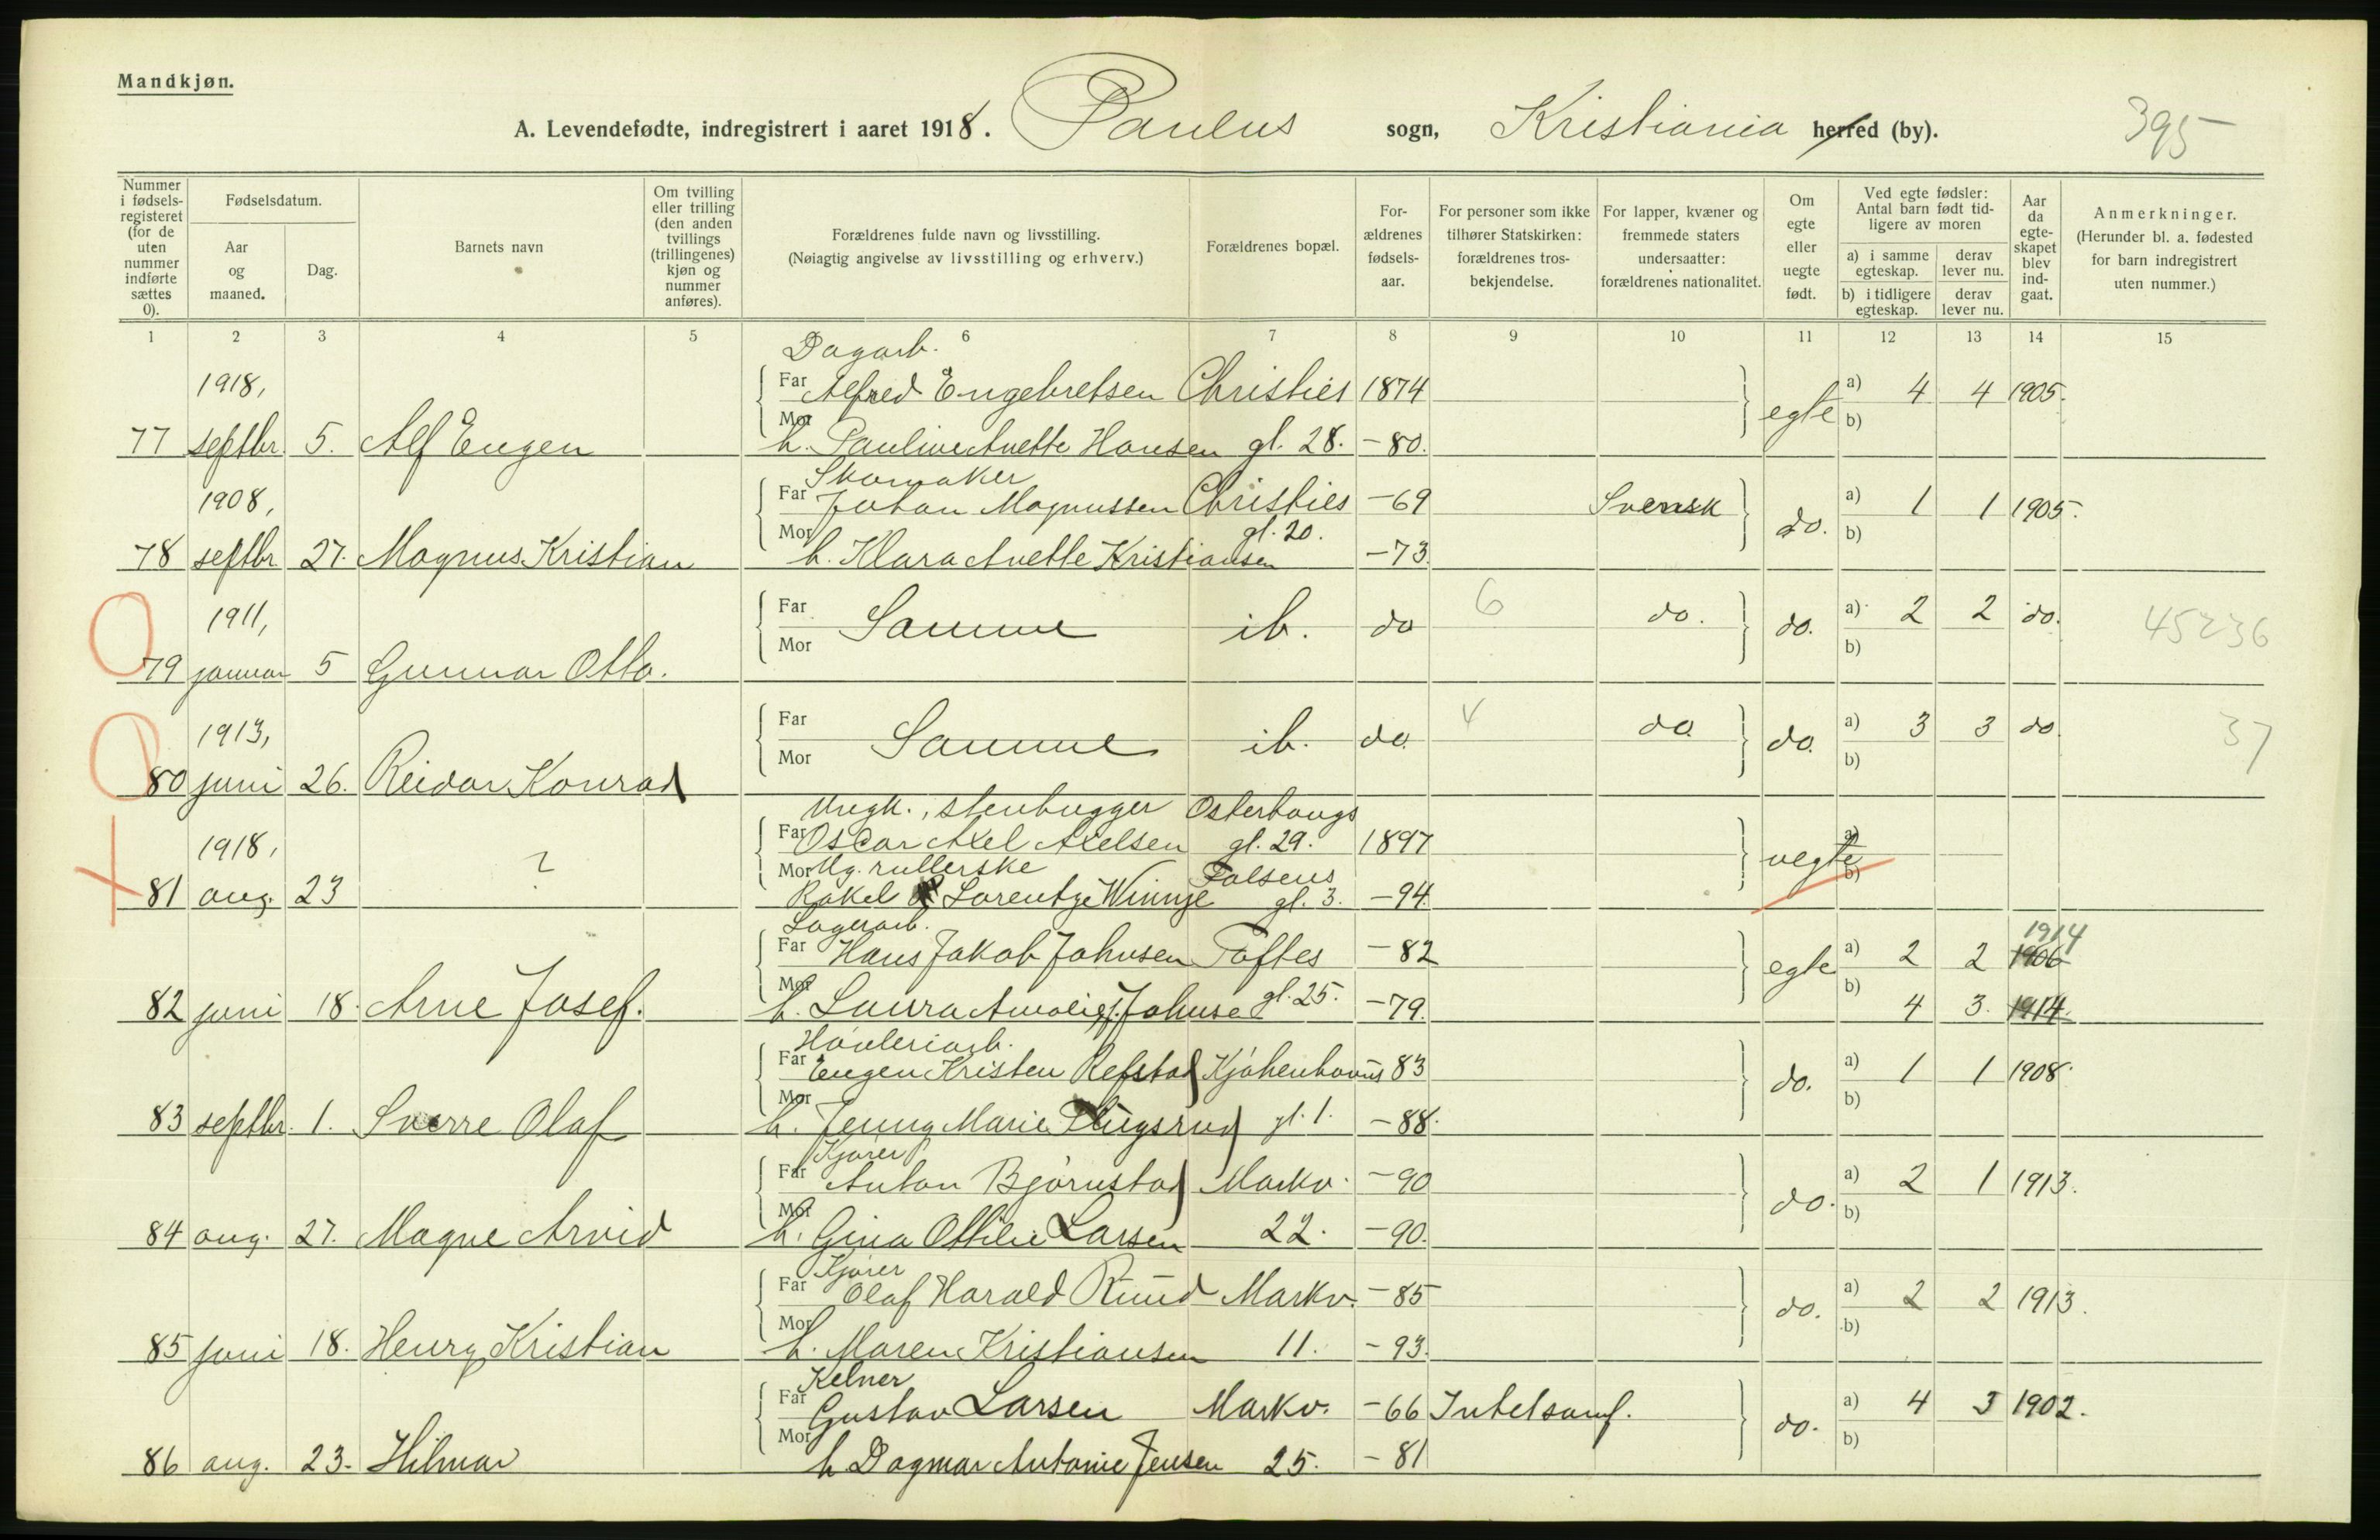 Mandkjøn.
A. Levendefødte, indregistrert i aaret 1918. Paulus sogn, Kristiania herred (by). 395
Nummer i fødsels-registeret (for de uten nummer indførte sættes 0).
Fødselsdatum.
Aar og maaned.
Dag.
Barnets navn
Om tvilling eller trilling (den anden tvillings (trillingenes) kjøn og nummer anføres).
Forældrenes fulde navn og livsstilling.
(Nøiagtig angivelse av livsstilling og erhverv.)
Forældrenes bopæl.
For-ældrenes fødsels-aar.
For personer som ikke tilhører Statskirken: forældrenes tros-bekjendelse.
For lapper, kvæner og fremmede staters undersaatter: forældrenes nationalitet.
Om egte eller uegte født.
Ved egte fødsler: Antal barn født tid-ligere av moren
a) i samme egteskap. derav lever nu.
b) i tidligere egteskap. derav lever nu.
Aar da egte-skapet blev ind-gaat.
Anmerkninger.
(Herunder bl. a. fødested for barn indregistrert uten nummer.)
1 2 3 4 5 6 7 8 9 10 11 12 13 14 15
Dagarb.
1918, Far Alfred Engebretsen Christies 1874 a) 4 4 1905.
77 septbr. 5. Alf Eugen Mor h. Pauline Anette Hansen gl. 28. -80. egte b)
Skomaker
1908, Far Johan Magnussen Christies -69 Svensk a) 1 1 1905.
78 septbr 27. Magnus Kristian Mor h. Klara Anette Kristiansen gl. 20. -73. do. b)
1911, Far Mor Samme ib. do 6 do. do. a) 2 2 do. 45236
79 januar 5 Gunnar Otto. b)
1913, Far Mor Samme ib. do. 4 do. do. a) 3 3 do 37
80 juni 26. Reidar Konrad b)
Ungk., stenhugger Osterhaugs
1918, Far Oscar Axel Axelsen gl. 29. 1897 uegte a)
Mor Ug. rullerske Falsens
81 aug. 23 ? Rakel Lorentze Winnje gl. 3. -94. b)
Lagerarb.
Far Hans Jakob Johnsen Toftes -82 egte a) 2 2 1914 1906
82 juni 18. Arne Josef. Mor h. Laura Amalie f. Johnse gl. 25. -79. b) 4 3. 1914.
Far Eugen Kristen Refstad Kjøbenhavns 83 do. a) 1 1 1908.
83 septbr. 1. Sverre Olaf Mor h. Jenny Marie gl. 1. -88. b)
Kjører
Far Anton Bjørnstad Markv. -90 do. a) 2 1 1913.
84 aug. 27. Magne Arvid Mor h. Gina Ottilie Larsen 22. -90. b)
Kjører
Far Olaf Harald Ruud Markv. -85 do. a) 2 2 1913.
85 juni 18. Henry Kristian Mor h. Maren Kristiansen 11. -93. b)
Kelner
Far Gustav Larsen Markv. -66 do. a) 4 3 1902.
86 aug. 23. Hilmar Mor h Dagmar Antonie Jensen 25. -81 b)